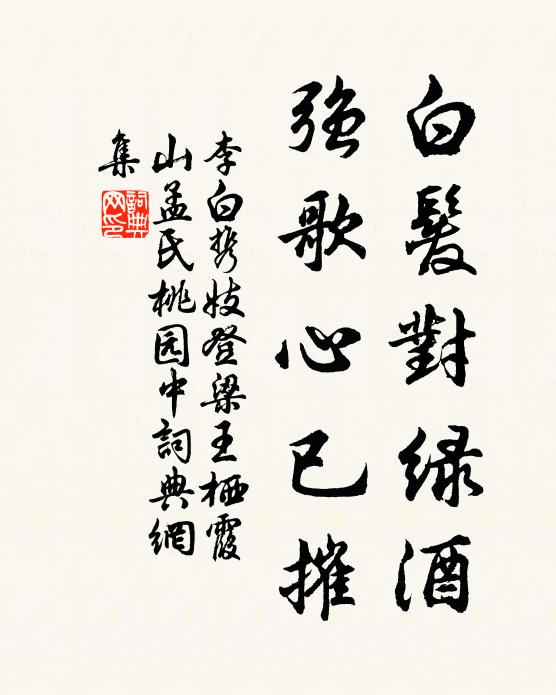 白髮對绿酒
強歌心已摧
李白携妓登梁王栖霞
山孟氏桃园中詞典網
集
詞典
网印